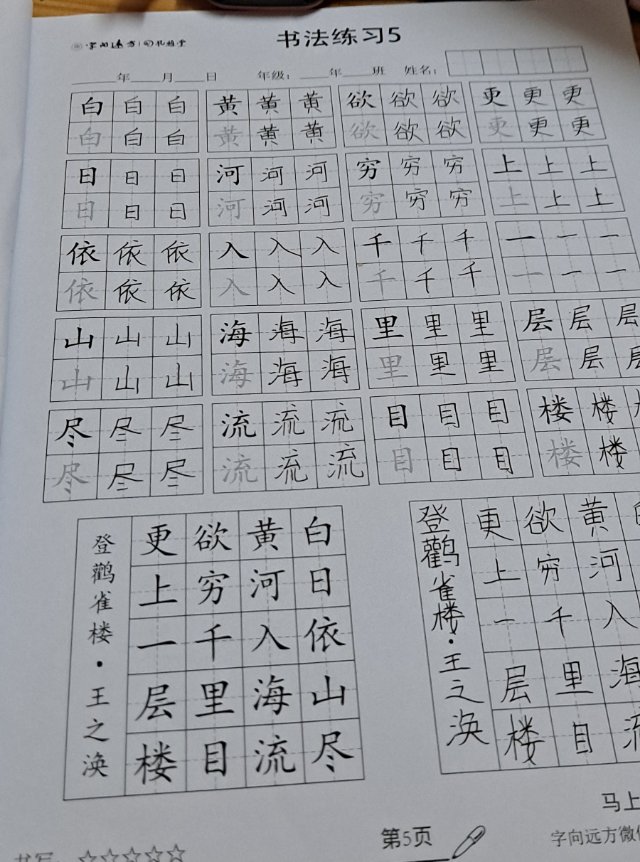 字向远方
书法练习5
年 月 日 年级： 年 班 姓名：
白 白 白 黄 黄 黄 欲 欲 欲 更 更 更
白 白 白 黄 黄 黄 欲 欲 欲 更 更 更
日 日 日 河 河 河 穷 穷 穷 上 上 上
日 日 日 河 河 河 穷 穷 穷 上 上 上
依 依 依 入 入 入 千 千 千 一 一 一
依 依 依 入 入 入 千 千 千 一 一 一
山 山 山 海 海 海 里 里 里 层 层 层
山 山 山 海 海 海 里 里 里 层 层 层
尽 尽 尽 流 流 流 目 目 目 楼 楼
尽 尽 尽 流 流 流 目 目 目 楼 楼
登鹳雀楼·王之涣
白日依山尽
黄河入海流
欲穷千里目
更上一层楼
登鹳雀楼·王之涣
白
黄河入海流
欲穷千里目
更上一层楼
书写：☆☆☆☆☆
第5页
马上
字向远方微信